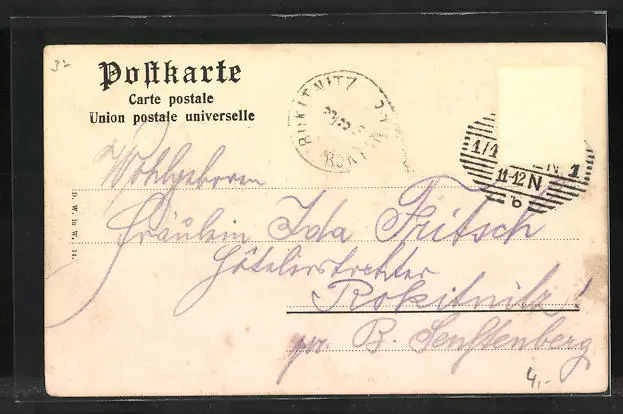 3-
Postkarte
Carte postale
Union postale universelle
ROKITNITZ
ROKYT
1/1
N 1
11-12N
6
Wohlgeboren
Fräulein Ida Fritsch
Hôtelierstochter
Rokitnitz!
pr B. Senftenberg
D. W. in W.
4,-